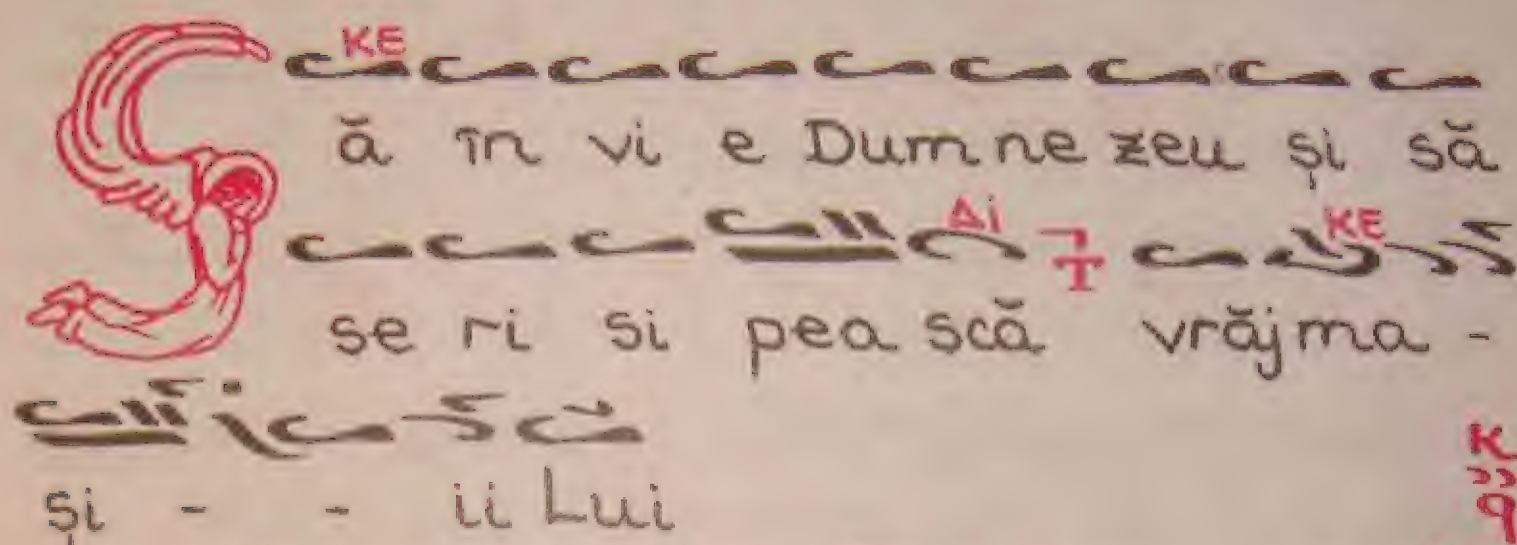 KE
Să în vi e Dumnezeu și să
Δi KE
se ri si pea scă vrăjma -
și - - ii Lui